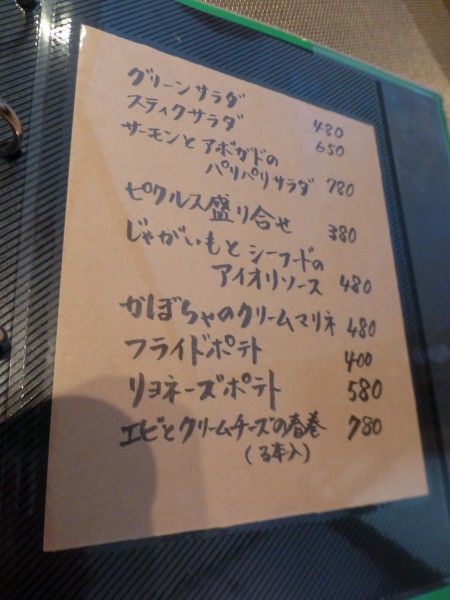 グリーンサラダ 480
スティクサラダ 650
サーモンとアボガドの
パリパリサラダ 780
ピクルス盛り合せ 380
じゃがいもとシーフードの
アイオリソース 480
かぼちゃのクリームマリネ 480
フライドポテト 400
リヨネーズポテト 580
エビとクリームチーズの春巻 780
(3本入)